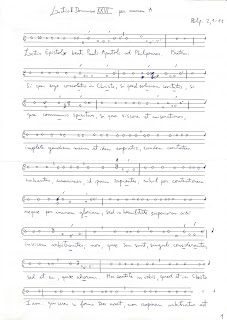 Lectio II Dominica XXVI per annum A
Phlp. 2, 1-11
Lectio Epistolæ beati Pauli Apostoli ad Philipenses. Fratres,
Si qua ergo consolatio in Christo, si quod solacium caritatis, si
qua communio spiritus, si qua viscera et miserationes,
implete gaudium meum ut idem sapiatis, eandem caritatem
habentes, unanimes, id ipsum sapientes, nihil per contentionem
neque per inanem gloriam, sed in humilitate superiores sibi
invicem arbitrantes, non, quæ sua sunt, singuli considerantes,
sed et ea, quæ aliorum. Hoc sentite in vobis, quod et in Christo
Iesu: qui cum in forma Dei esset, non rapinam arbitratus est
1